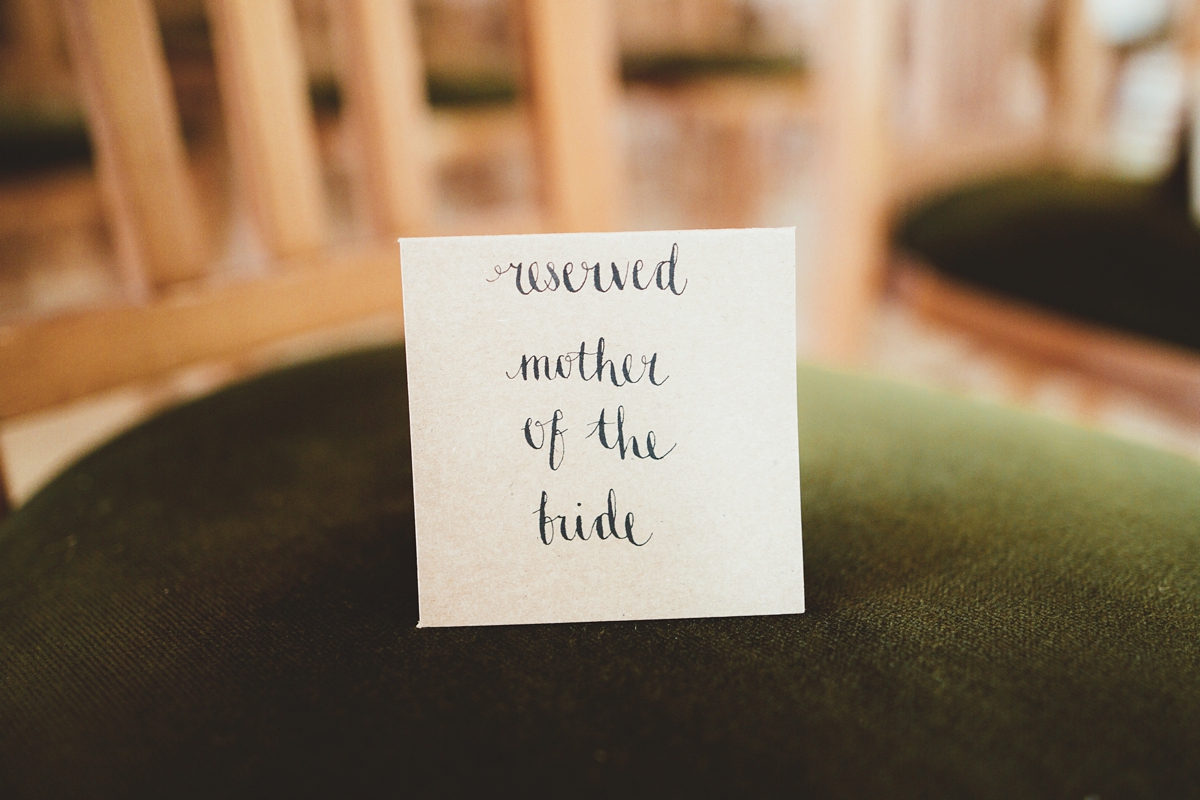 reserved
mother
of the
bride